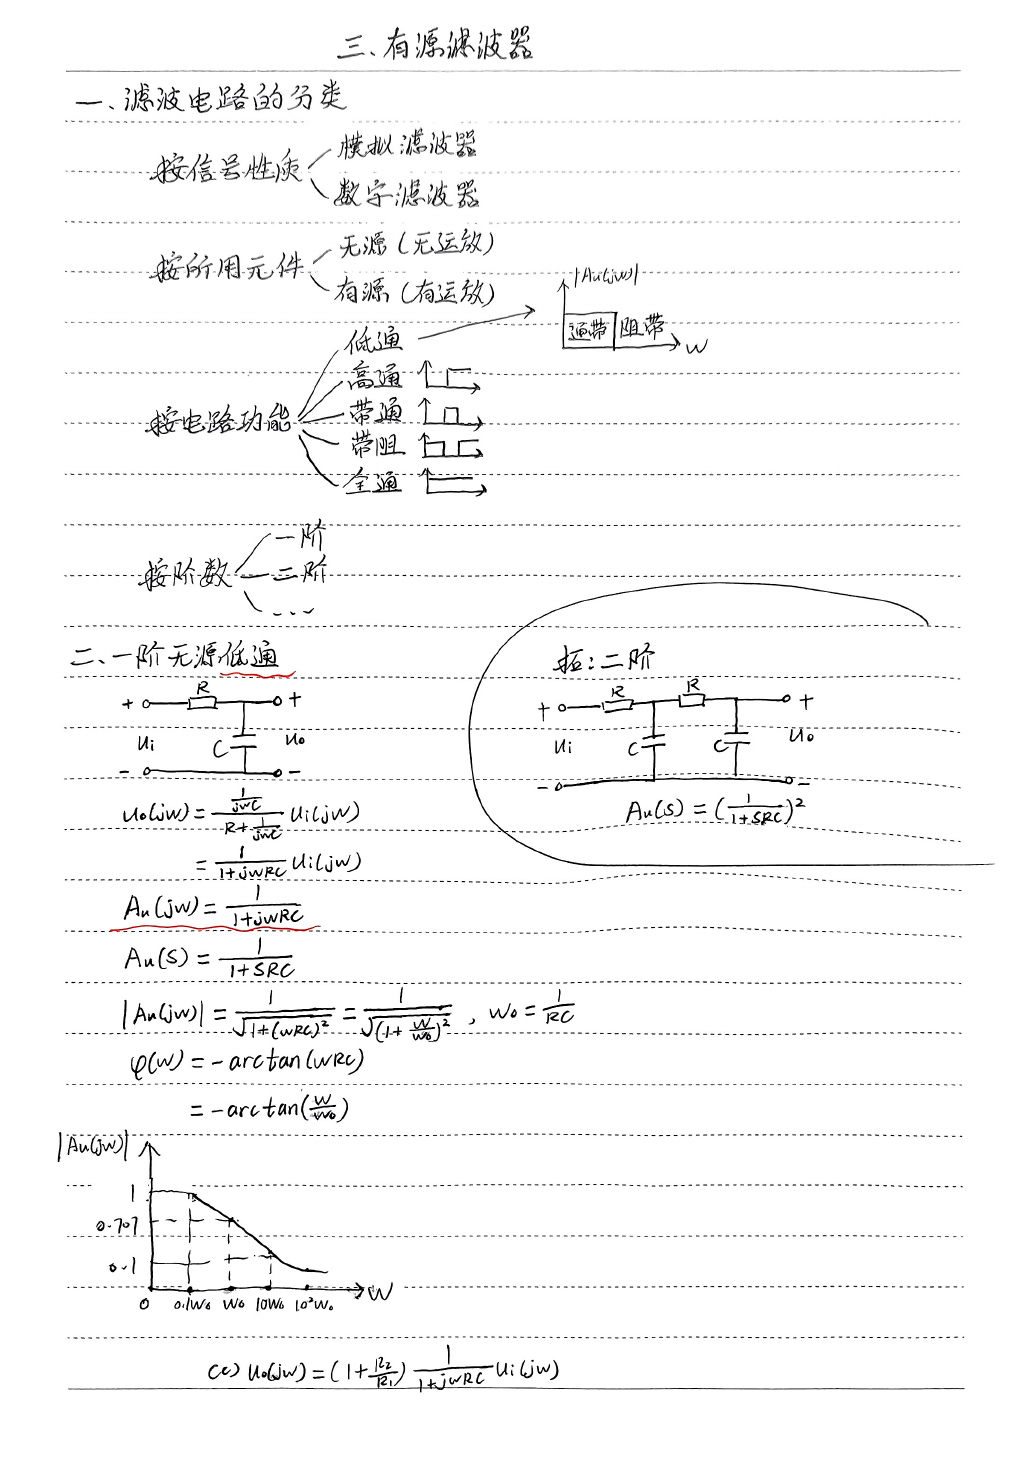 三、有源滤波器
一、滤波电路的分类
按信号性质
模拟滤波器
数字滤波器
按所用元件
无源(无运放)
有源(有运放)
按电路功能
低通
|Au(jw)|
通带 阻带
w
高通
带通
带阻
全通
按阶数
一阶
二阶
...
二、一阶无源低通
R
+ +
Ui C Uo
- -
Uo(jw) = \frac{\frac{1}{jwC}}{R+\frac{1}{jwC}} Ui(jw)
= \frac{1}{1+jwRC} Ui(jw)
Au(jw) = \frac{1}{1+jwRC}
Au(S) = \frac{1}{1+SRC}
|Au(jw)| = \frac{1}{\sqrt{1+(wRC)^2}} = \frac{1}{\sqrt{(1+\frac{w}{w0})^2}} , w0 = \frac{1}{RC}
φ(w) = -arctan(wRC)
= -arctan(\frac{w}{w0})
拓:二阶
R R
+ +
Ui C C Uo
- -
Au(S) = (\frac{1}{1+SRC})^2
|Au(jw)|
1
0.707
0.1
0 0.1w0 w0 10w0 10²w0 w
(c) Uo(jw) = (1+\frac{R2}{R1}) \frac{1}{1+jwRC} Ui(jw)